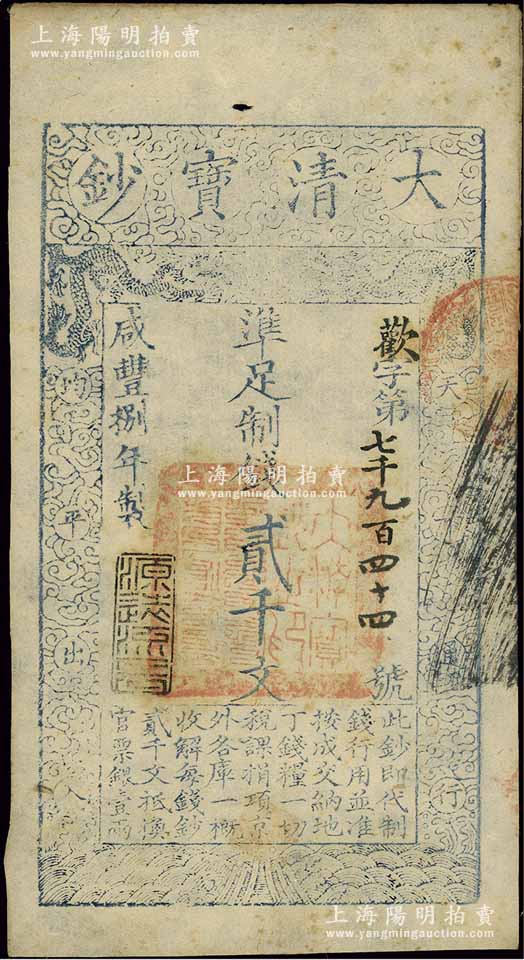 上海陽明拍賣
www.yangmingauction.com
大清寶鈔
歡字第七千九百四十四號
準足制錢貳千文
咸豐捌年製
天
行
均平出入
此鈔即代制
錢行用並准
按成交納地
丁錢糧一切
稅課捐項京
外各庫一概
收解每錢鈔
貳千文抵換
官票銀壹兩
上海陽明拍賣
www.yangmingauction.com
上海陽明拍賣
www.yangmingauction.com